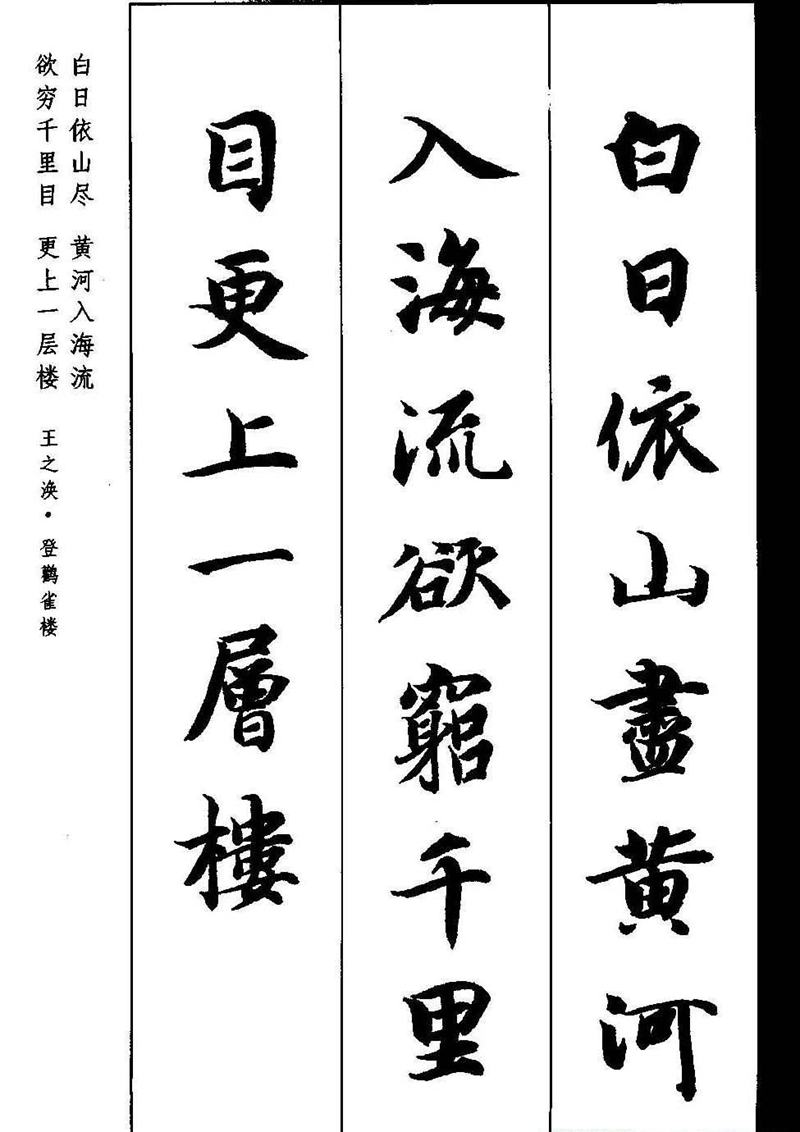 白日依山盡黄河
入海流欲窮千里
目更上一層樓
白日依山尽 黄河入海流
欲穷千里目 更上一层楼 王之涣·登鹳雀楼